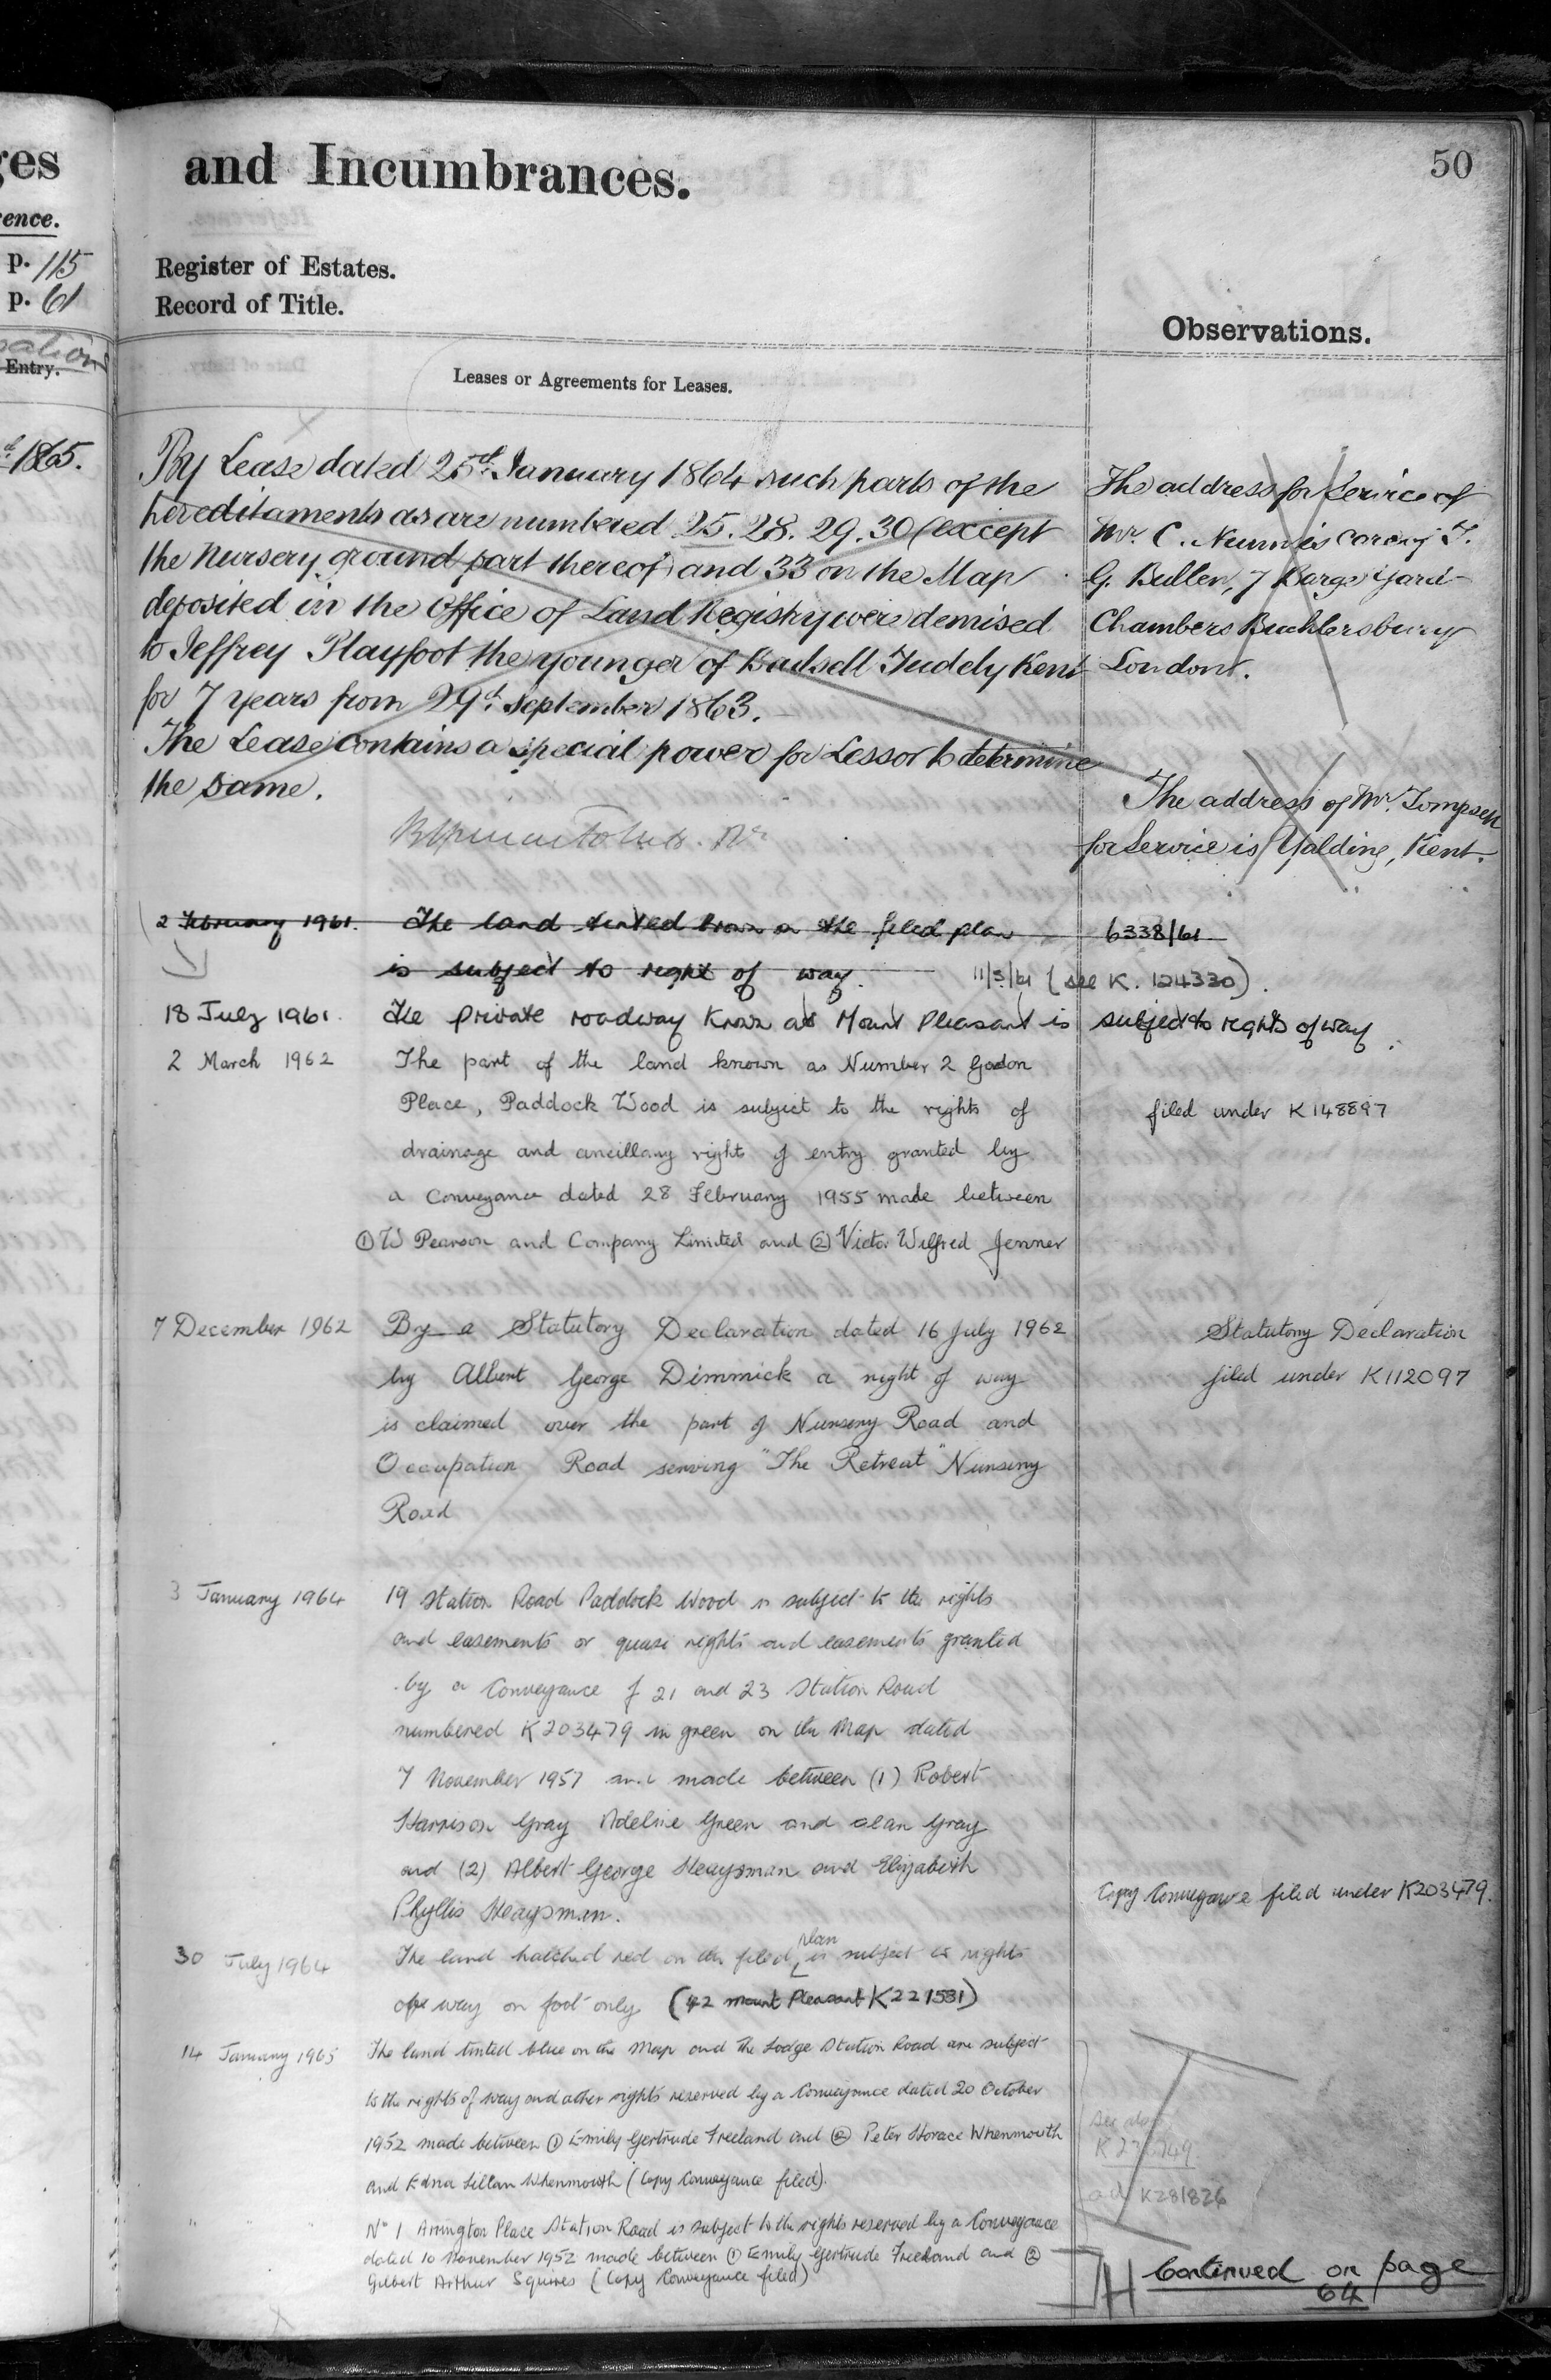 ges
ence.
p. 115
p. 61
Entry.
1865.
and Incumbrances.
50
Register of Estates.
Record of Title.
Observations.
Leases or Agreements for Leases.
By Lease dated 25th January 1864 such parts of the
hereditaments as are numbered 25. 28. 29. 30 (except
the Nursery ground part thereof) and 33 on the Map
deposited in the Office of Land Registry were demised
to Jeffrey Playfoot the younger of Badsell Tudely Kent
for 7 years from 29th September 1863.
The Lease contains a special power for Lessor to determine
the same.
The address for Service of
Mr. C. Nunn is care of T.
G. Bullen, 7 Barge Yard
Chambers Bucklersbury
London.
The address of Mr. Tompsett
for Service is Yalding, Kent.
2 February 1961. The land tinted brown on the filed plan 6338/61
is subject to right of way. 11/3/61 (see K. 124330).
18 July 1961. The private roadway known as Mount Pleasant is subject to rights of way.
2 March 1962 The part of the land known as Number 2 Godon
Place, Paddock Wood is subject to the rights of filed under K148897
drainage and ancillary right of entry granted by
a Conveyance dated 28 February 1955 made between
① W Pearson and Company Limited and ② Victor Wilfred Jenner
7 December 1962 By a Statutory Declaration dated 16 July 1962 Statutory Declaration
by Albert George Dimmick a right of way filed under K112097
is claimed over the part of Nursery Road and
Occupation Road serving "The Retreat" Nursery
Road
3 January 1964 19 Station Road Paddock Wood is subject to the rights
and easements or quasi rights and easements granted
by a Conveyance of 21 and 23 Station Road
numbered K203479 in green on the Map dated
7 November 1957 and made between (1) Robert
Harrison Gray Adeline Green and Alan Gray
and (2) Albert George Heaysman and Elizabeth
Phyllis Heaysman. Copy Conveyance filed under K203479.
30 July 1964 The land hatched red on the filed plan is subject to rights
of way on foot only (42 Mount Pleasant K221531)
14 January 1965 The land tinted blue on the Map and The Lodge Station Road are subject
to the rights of way and other rights reserved by a Conveyance dated 20 October
1952 made between ① Emily Gertrude Freeland and ② Peter Horace Whenmouth
and Edna Lillian Whenmouth (Copy Conveyance filed).
see also
K281826
" " " No 1 Arrington Place Station Road is subject to the rights reserved by a Conveyance
dated 10 November 1952 made between ① Emily Gertrude Freeland and ②
Gilbert Arthur Squires (Copy Conveyance filed)
Continued on page
64